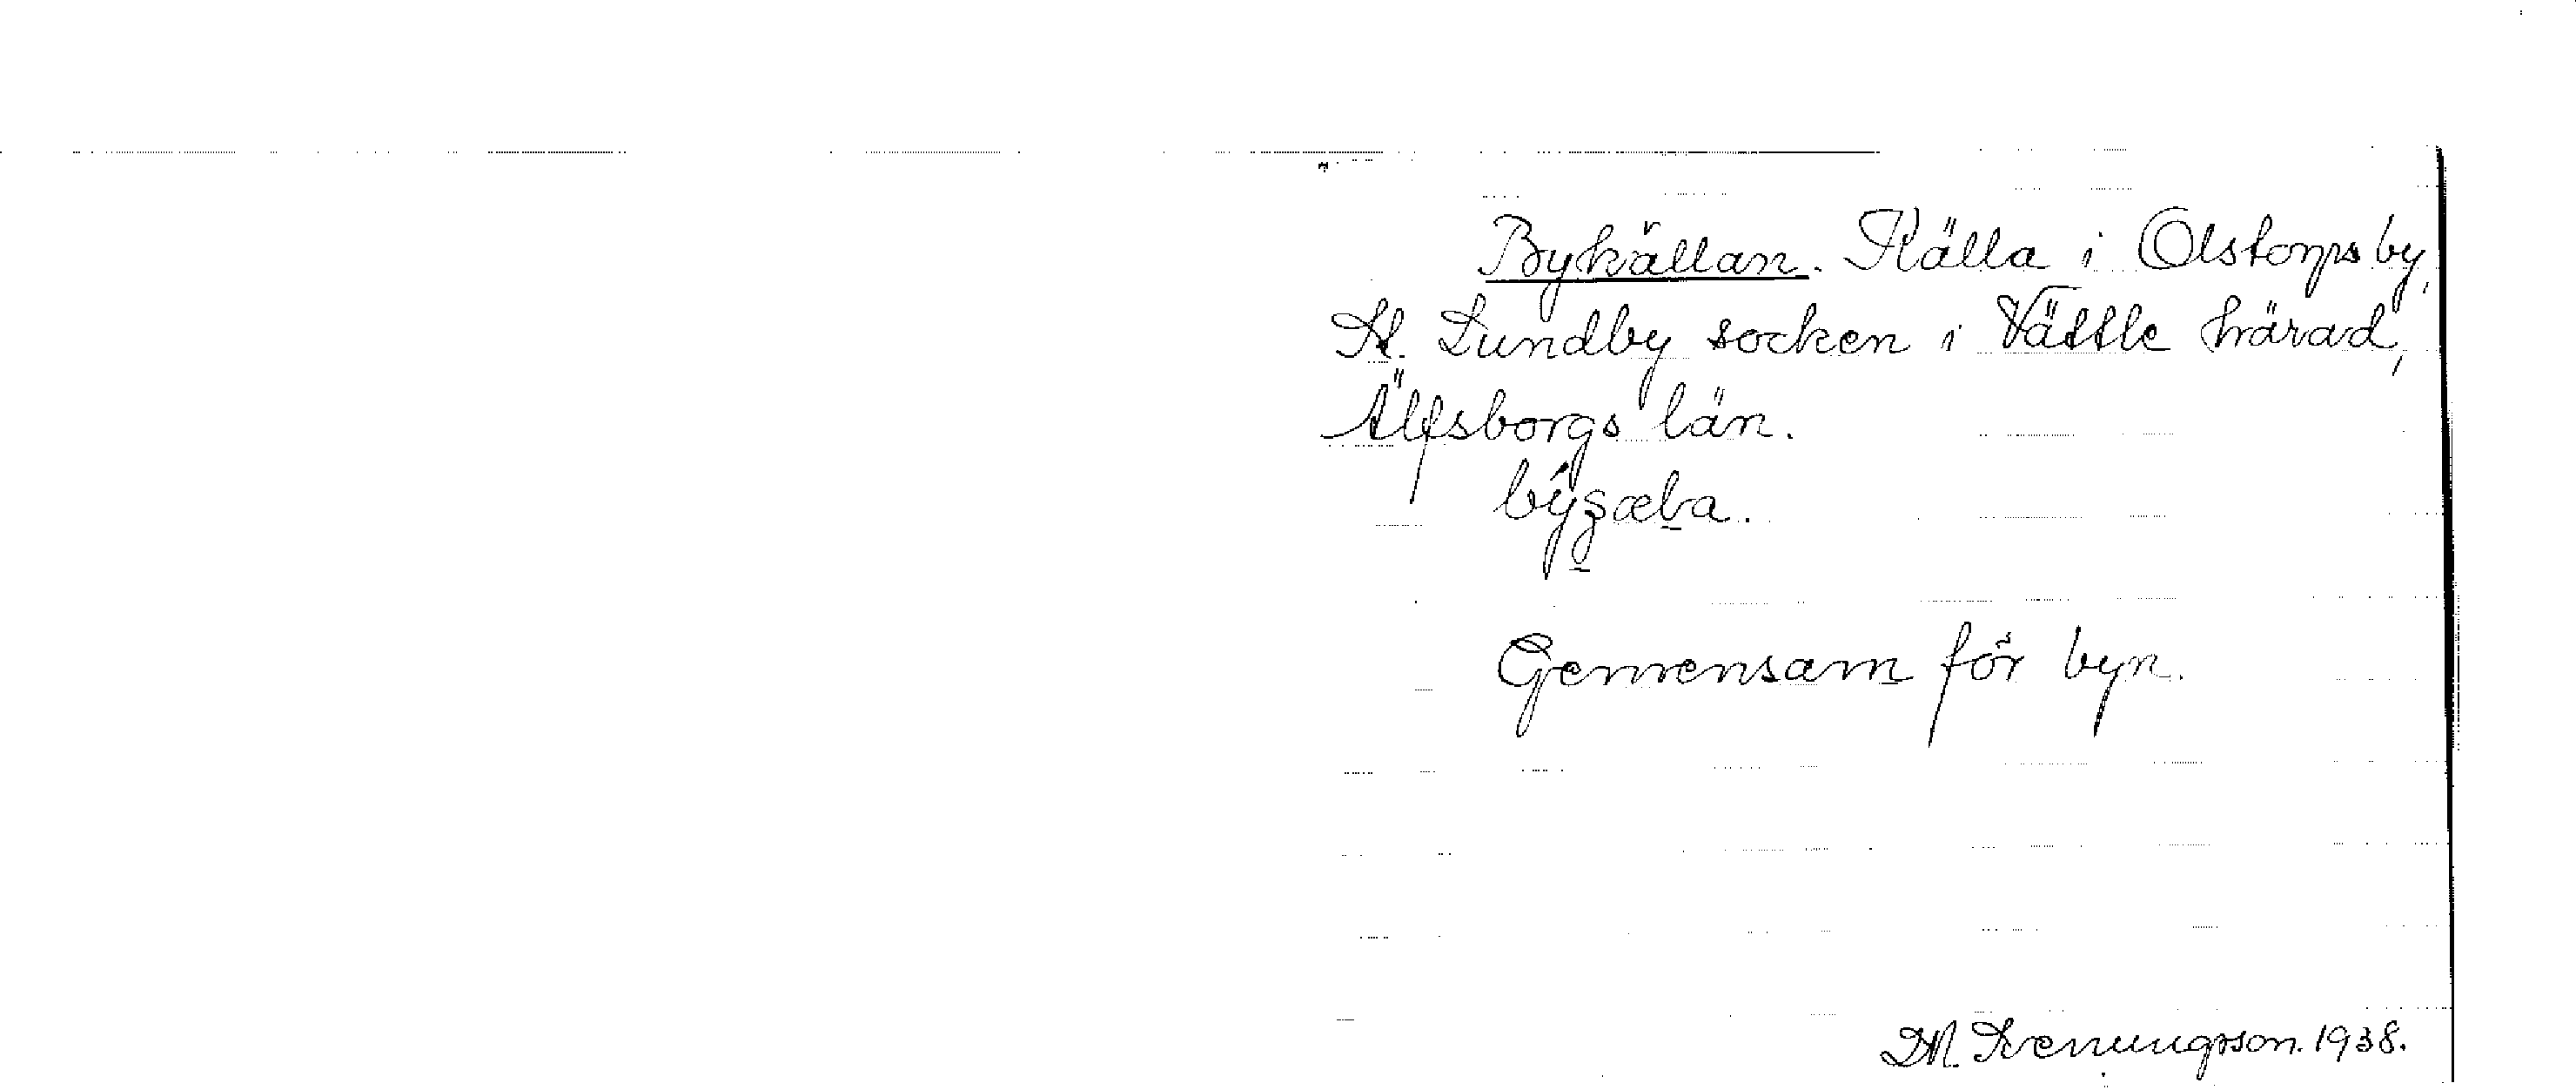 Bykällan. Källa i Olstorps by,
St. Lundby socken i Vättle härad,
Älfsborgs län.
Gemensam för byn.
D.M. Svenungsson. 1938.